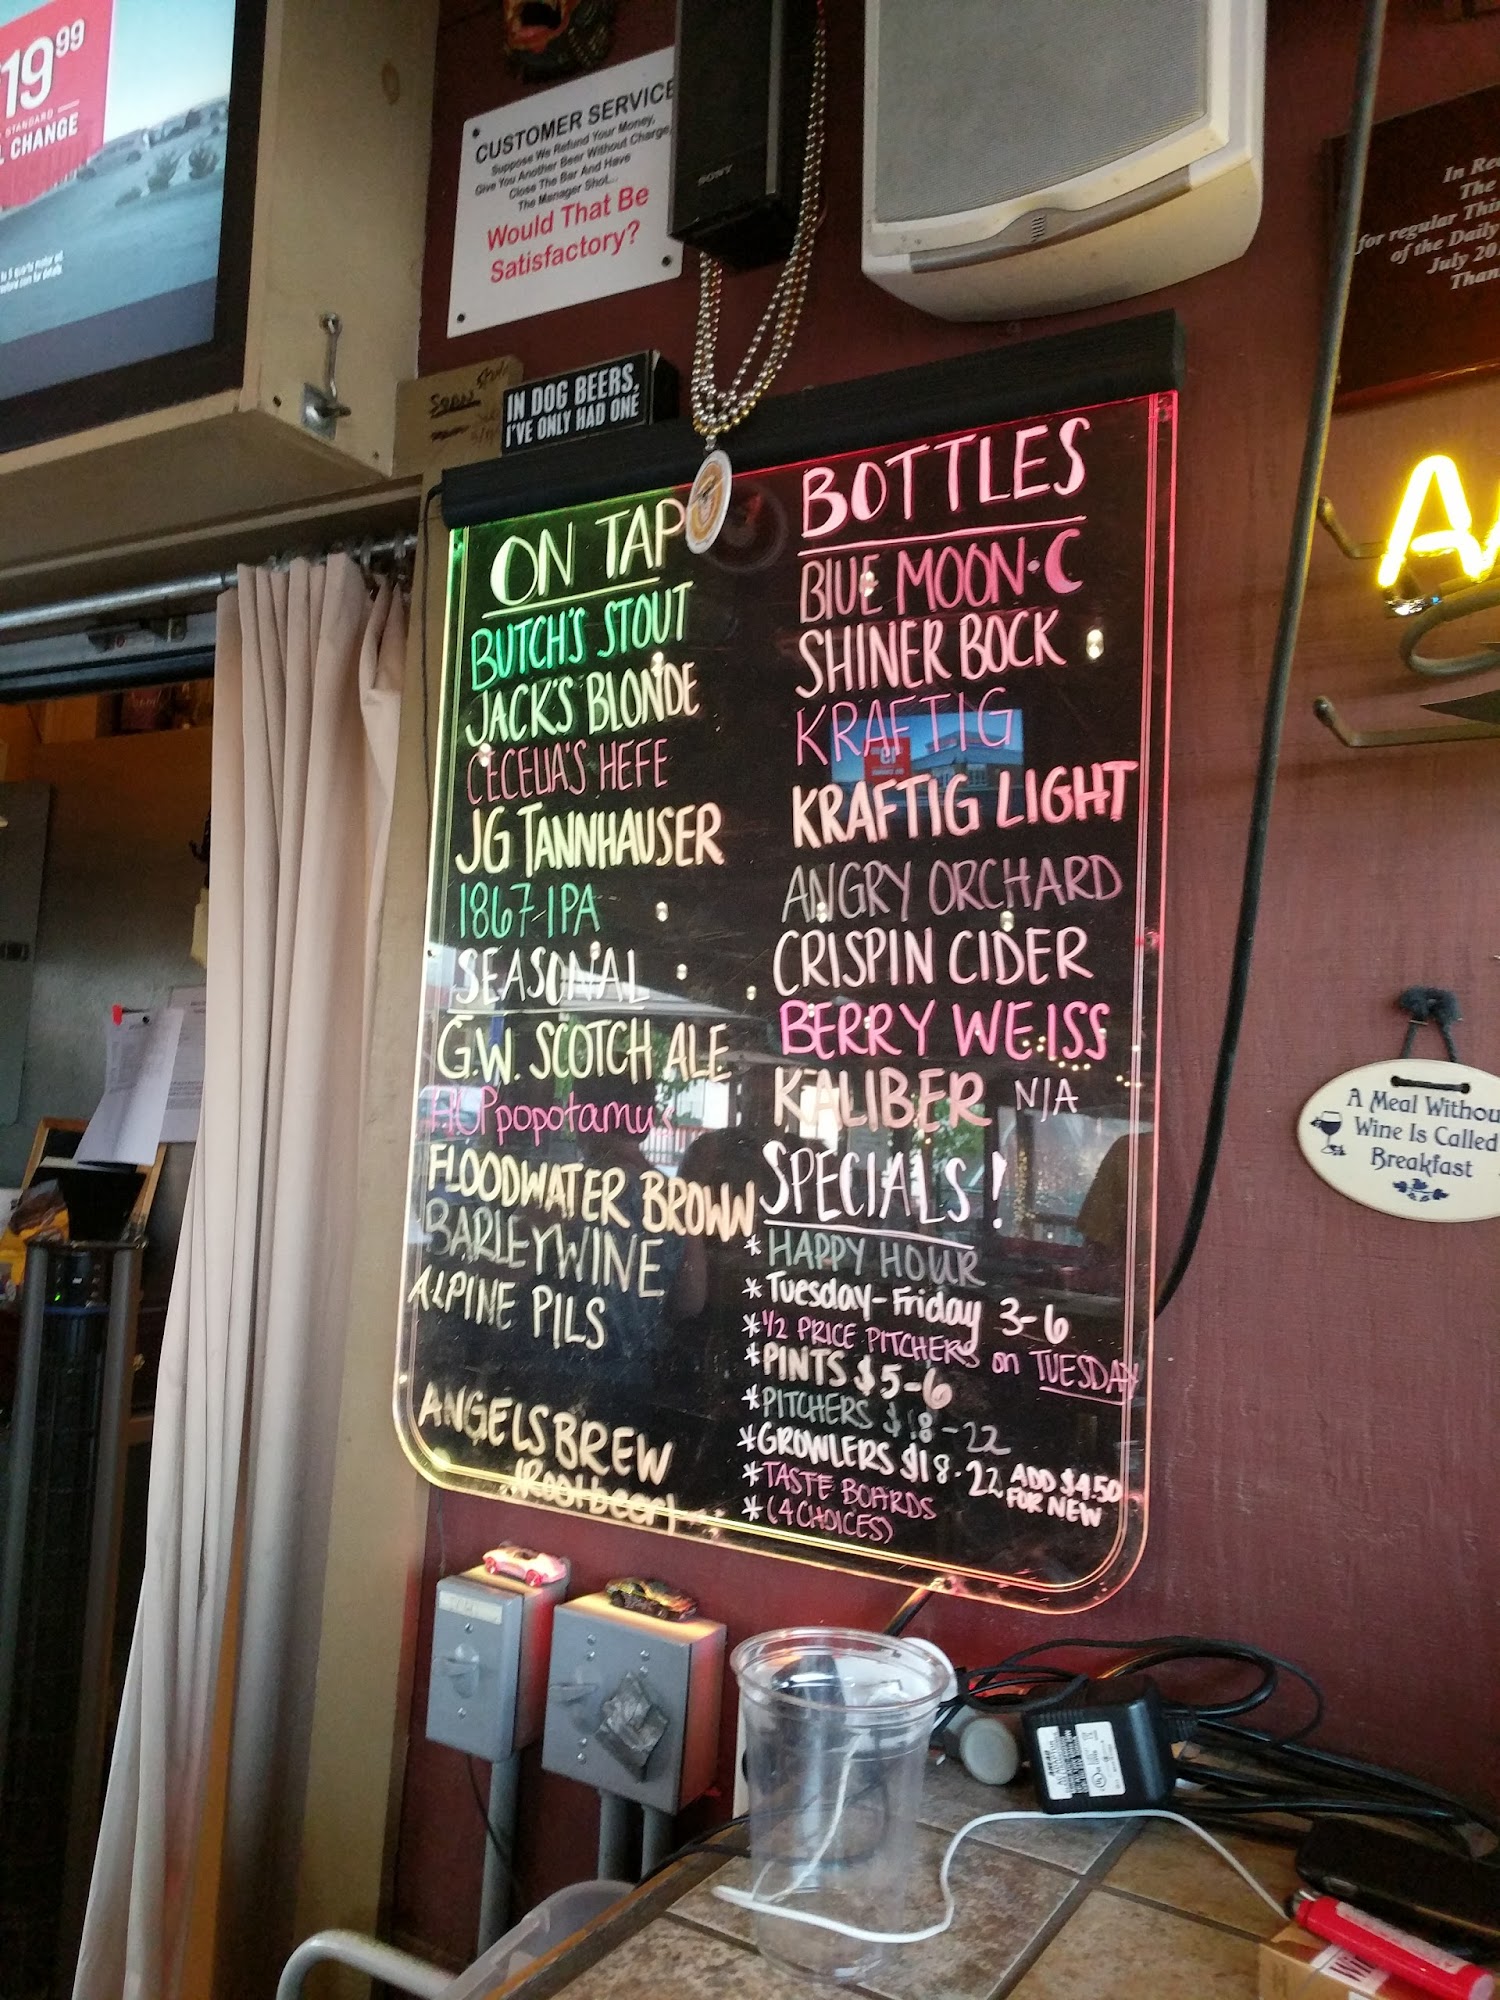 19⁹⁹
STANDARD
CHANGE
CUSTOMER SERVICE
Suppose We Refund Your Money,
Give You Another Beer Without Charge,
Close The Bar And Have
The Manager Shot...
Would That Be
Satisfactory?
SONY
IN DOG BEERS,
I'VE ONLY HAD ONE
In
The
for regular
of the Daily
July
ON TAP
BUTCH'S STOUT
JACK'S BLONDE
CECELIA'S HEFE
JG TANNHAUSER
1867 IPA
SEASONAL
G.W. SCOTCH ALE
HOPpopotamus
FLOODWATER BROWN
BARLEYWINE
ALPINE PILS
ANGELS BREW
(Rootbeer)
BOTTLES
BLUE MOON·C
SHINER BOCK
KRAFTIG
KRAFTIG LIGHT
ANGRY ORCHARD
CRISPIN CIDER
BERRY WEISS
KALIBER N/A
SPECIALS!
* HAPPY HOUR
* Tuesday-Friday 3-6
* 1/2 PRICE PITCHERS on TUESDAY
* PINTS $5-6
* PITCHERS $18-22
* GROWLERS $18-22 ADD $4.50
FOR NEW
* TASTE BOARDS
* (4 CHOICES)
A Meal Withou
Wine Is Called
Breakfast